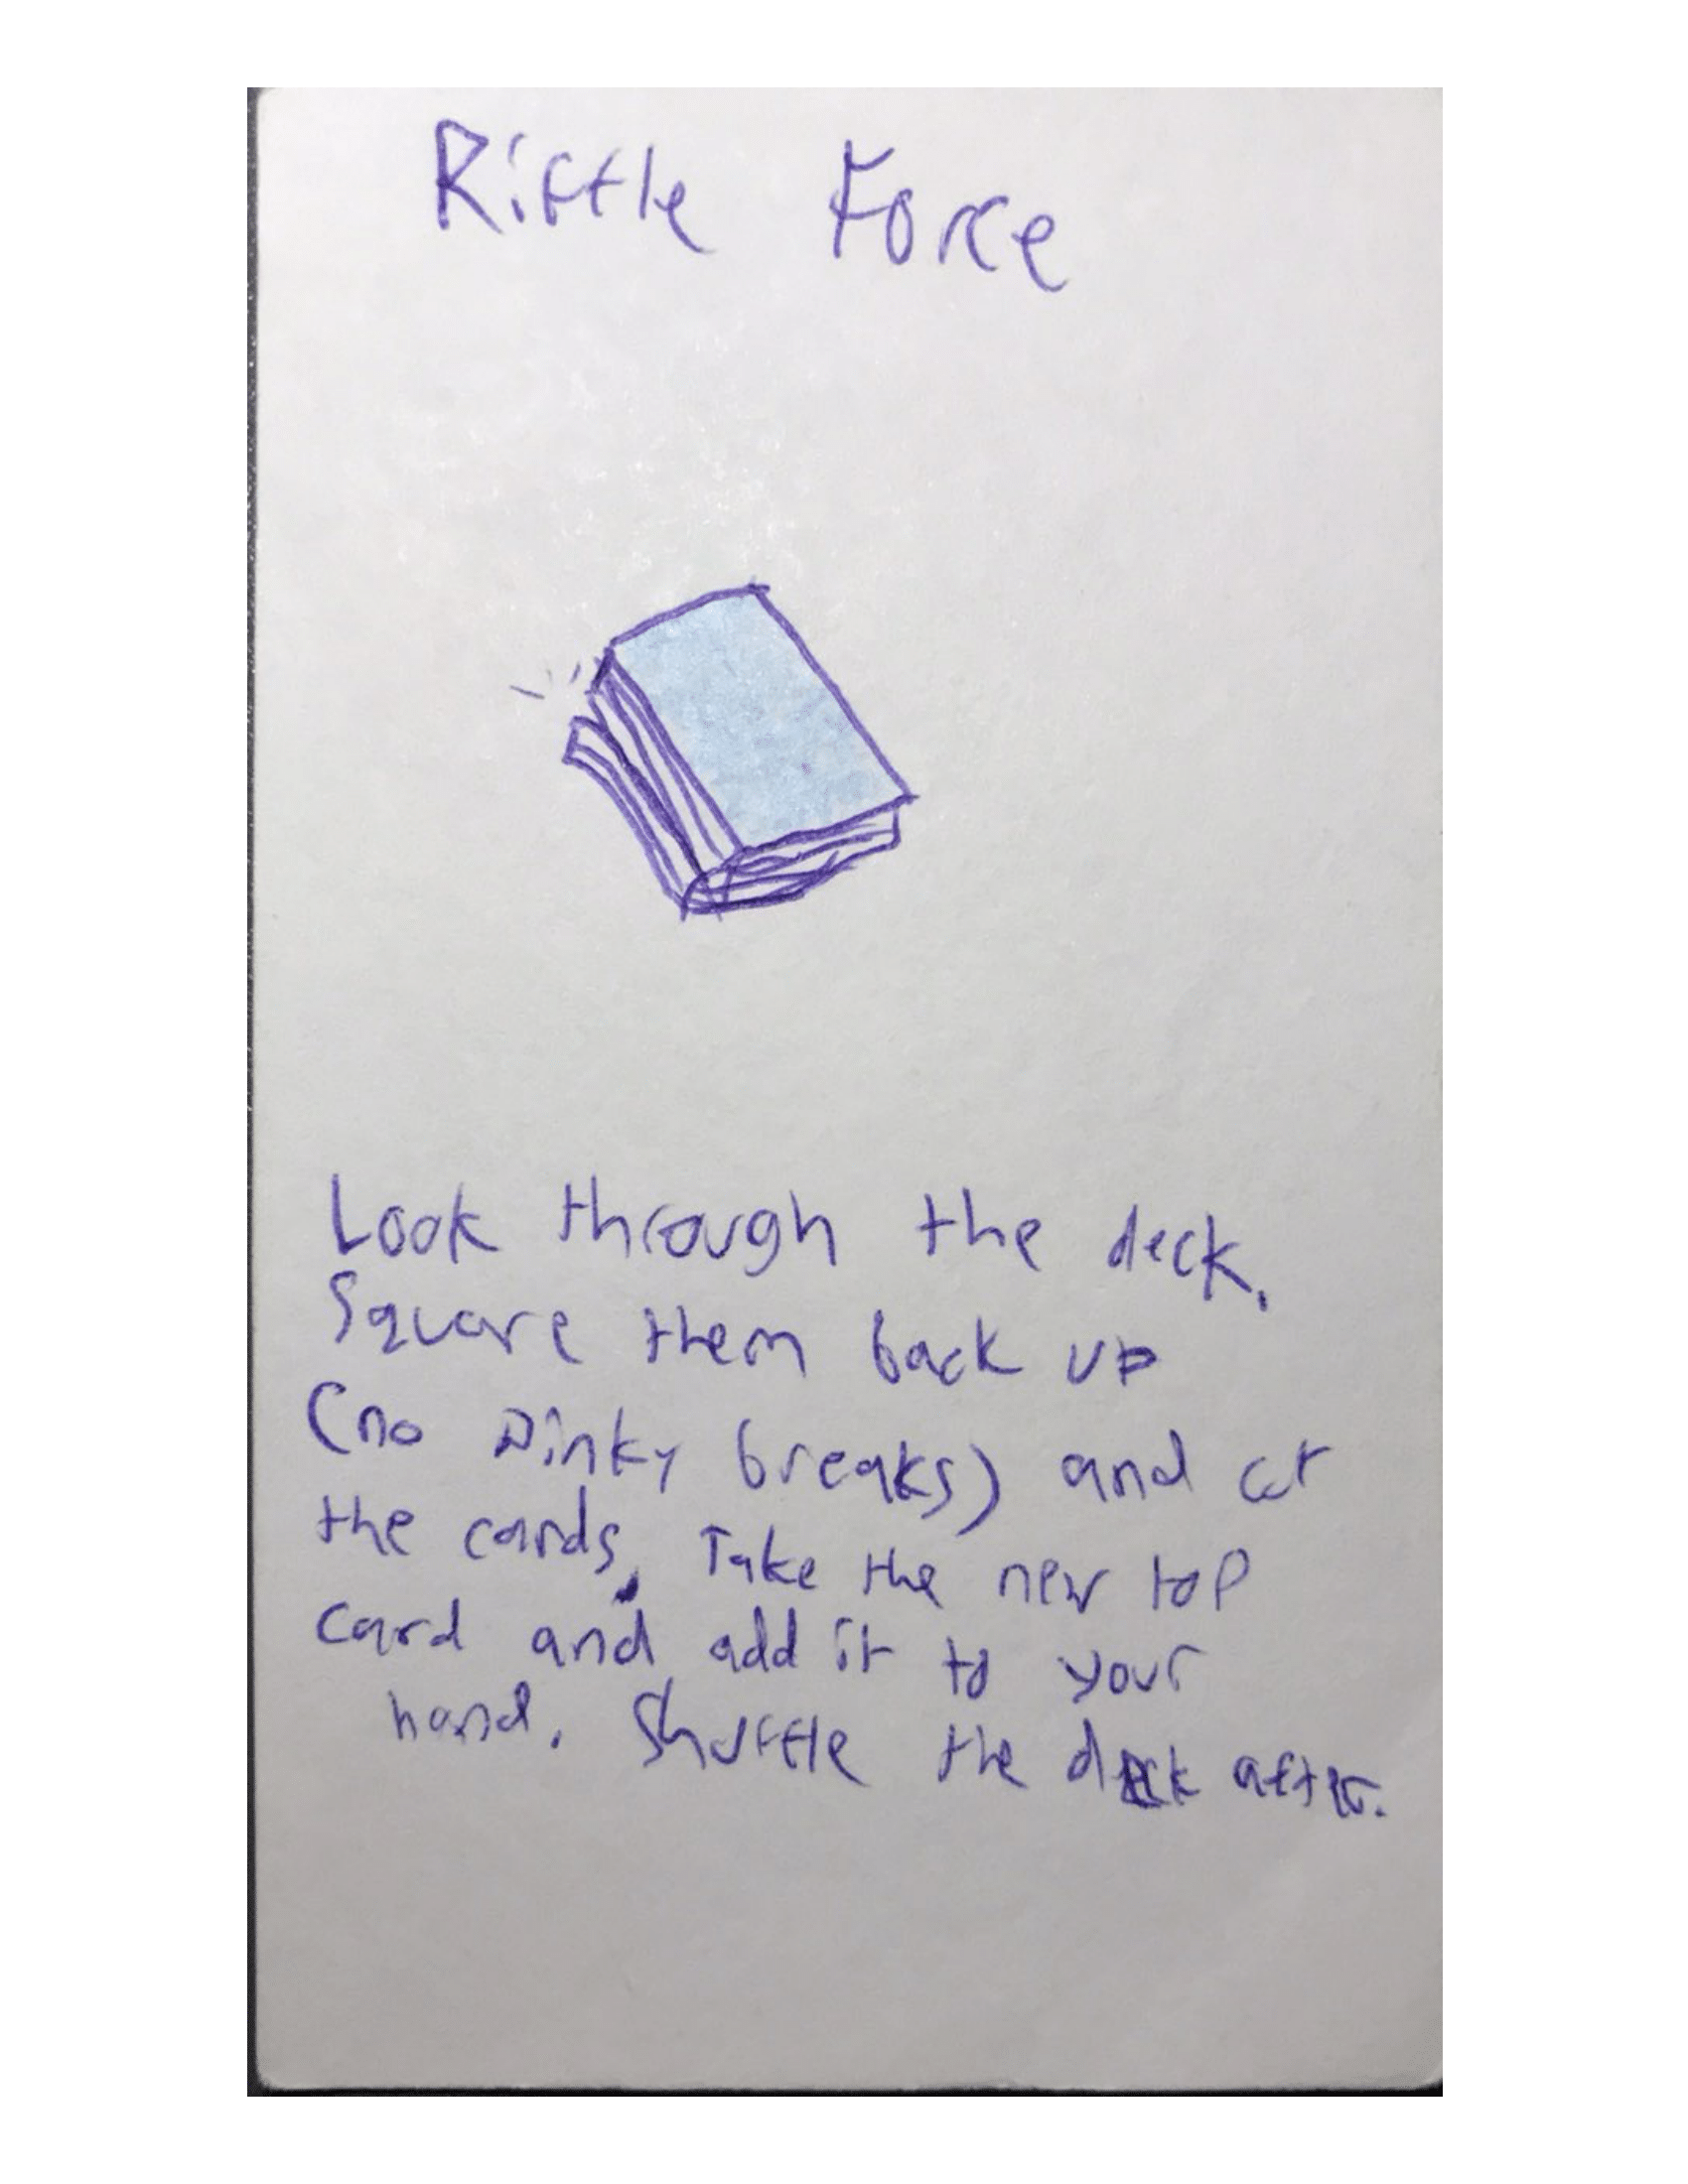 Riffle Force
Look through the deck.
Square them back up
(no Pinky breaks) and cut
the cards. Take the new top
card and add it to your
hand. Shuffle the deck after.